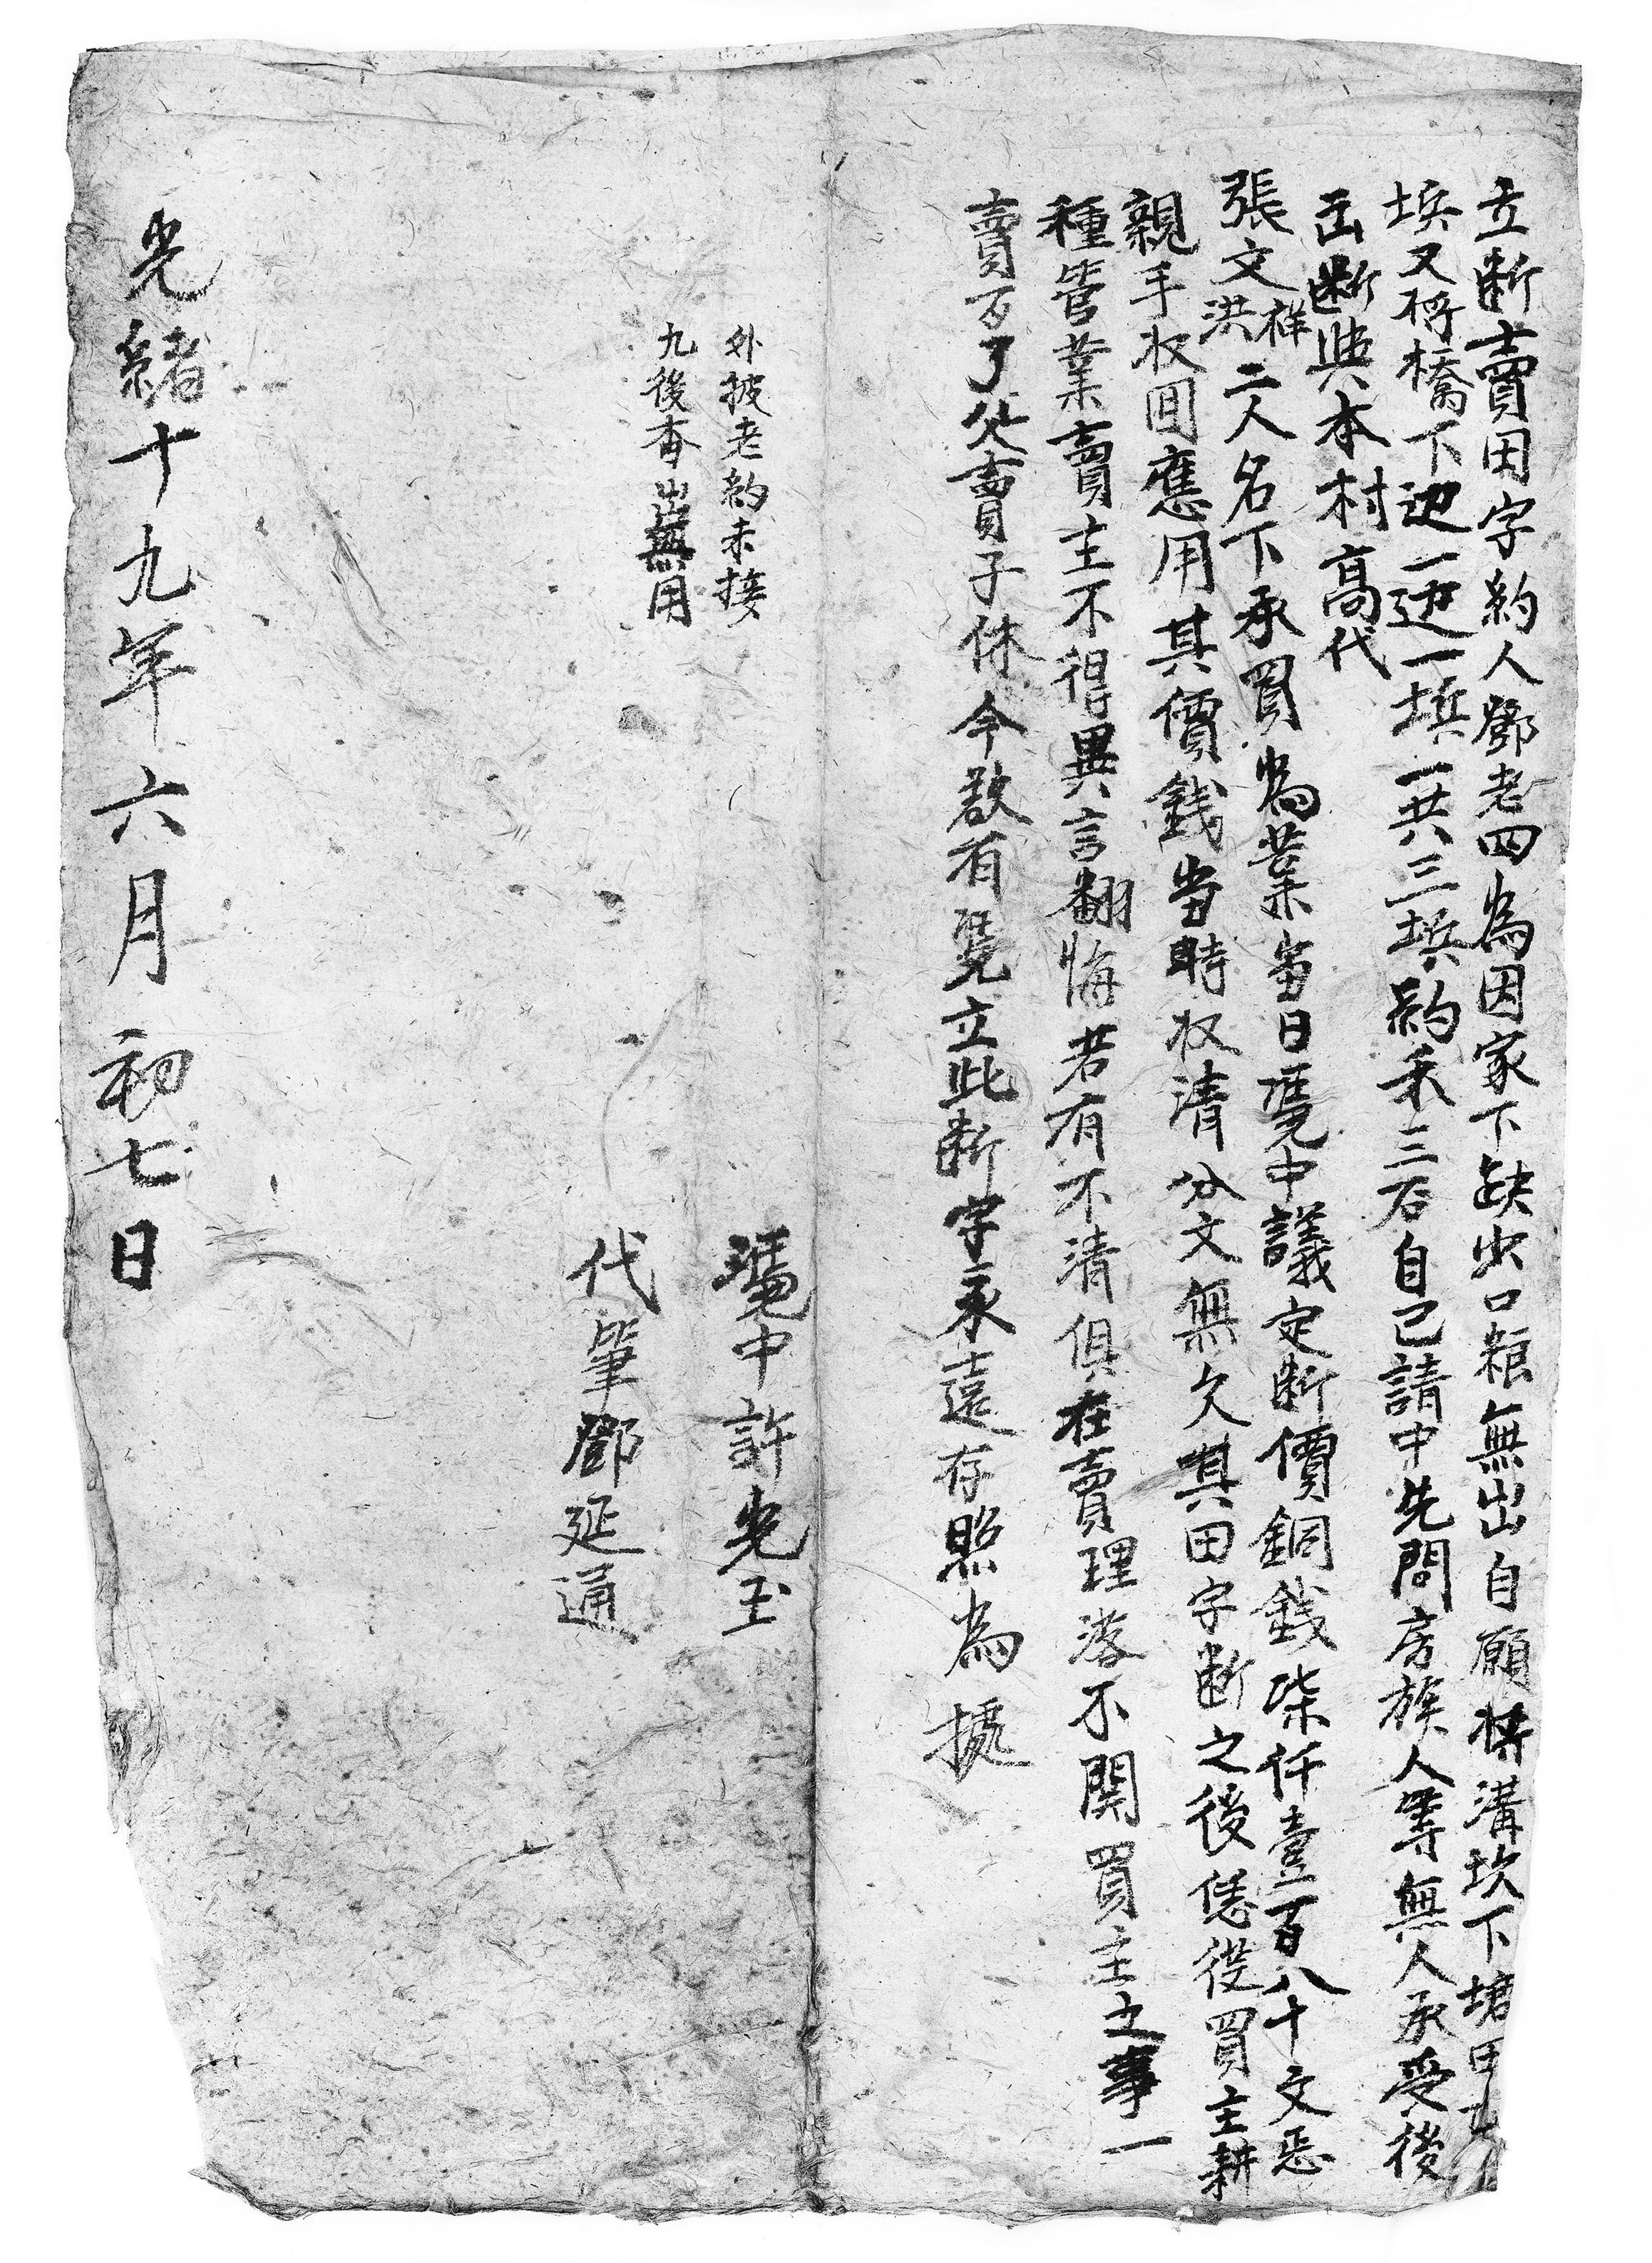 立断賣田字約人鄧老四為因家下缺少口粮無出自愿將溝坎下塘田
坵又將橋下边一边一坵一共三坵約禾三石自己請中先問房族人等無人承受後
出断與本村高代
張文祥洪二人名下承買為業當日凴中議定断價銅錢柒仟壹百八十文
親手收囬應用其價錢當時收清分文無欠其田字断之後恁從買主耕
種管業賣主不得異言翻悔若有不清俱在賣理落不関買主之事一
賣百了父賣子休今欲有凴立此断字永遠存照為據
外披老約未接
九後查出無用
凴中許光玉
代筆鄧延通
光緒十九年六月初七日